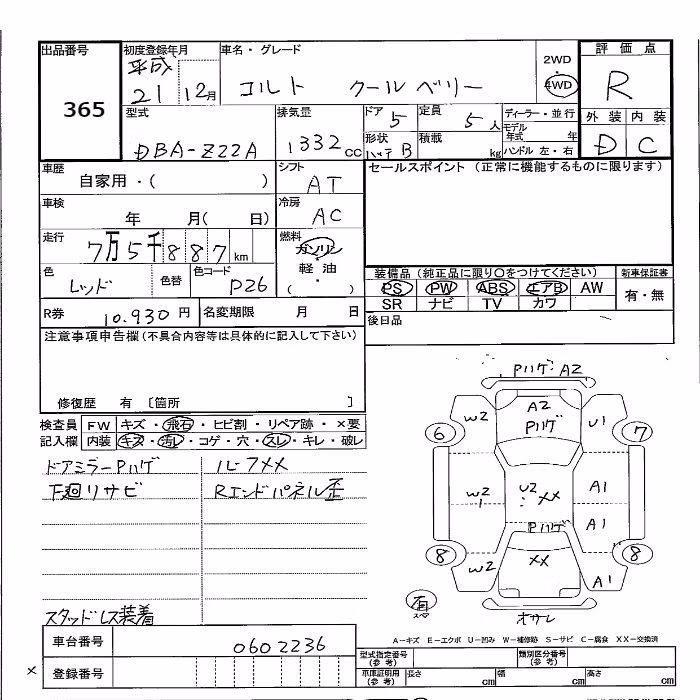 出品番号
365
初度登録年月
平成
21 12月
車名・グレード
コルト クールベリー
2WD
4WD
評価点
R
型式
DBA-Z22A
排気量
1332 CC
ドア 5
定員 5 人
形状 ハッチB
積載 kg
ディーラー・並行
モデル年式 年
ハンドル 左・右
外装 内装
D C
車歴
自家用・( )
シフト
AT
セールスポイント (正常に機能するものに限ります)
車検
年 月( 日)
冷房
AC
走行
7万5千887km
燃料
ガソリン
軽油
( ・ )
色
レッド
色替
色コード
P26
装備品 (純正品に限り○をつけてください)
PS PW ABS エアB AW
SR ナビ TV カワ
新車保証書
有・無
R券 10,930 円
名変期限 月 日
後日品
注意事項申告欄(不具合内容等は具体的に記入して下さい)
修復歴 有 〔箇所 〕
検査員
記入欄
FW キズ・飛石・ヒビ割・リペア跡・×要
内装 キズ・汚レ・コゲ・穴・スレ・キレ・破レ
ドアミラーPハゲ
ルーフXX
下廻リサビ
Rエンドパネル歪
スタッドレス装着
PハゲA2
W2
A2
Pハゲ
U1
6
7
W2
U2
XX
A1
A1
Pハゲ
8
8
W2
XX
A1
有
スペ
オサレ
A-キズ E-エクボ U-凹み W-補修跡 S-サビ C-腐食 XX-交換済
車台番号
0602236
× 登録番号
型式指定番号
(参考)
類別区分番号
(参考)
車庫証明用
(参考)
長さ cm
幅 cm
高さ cm